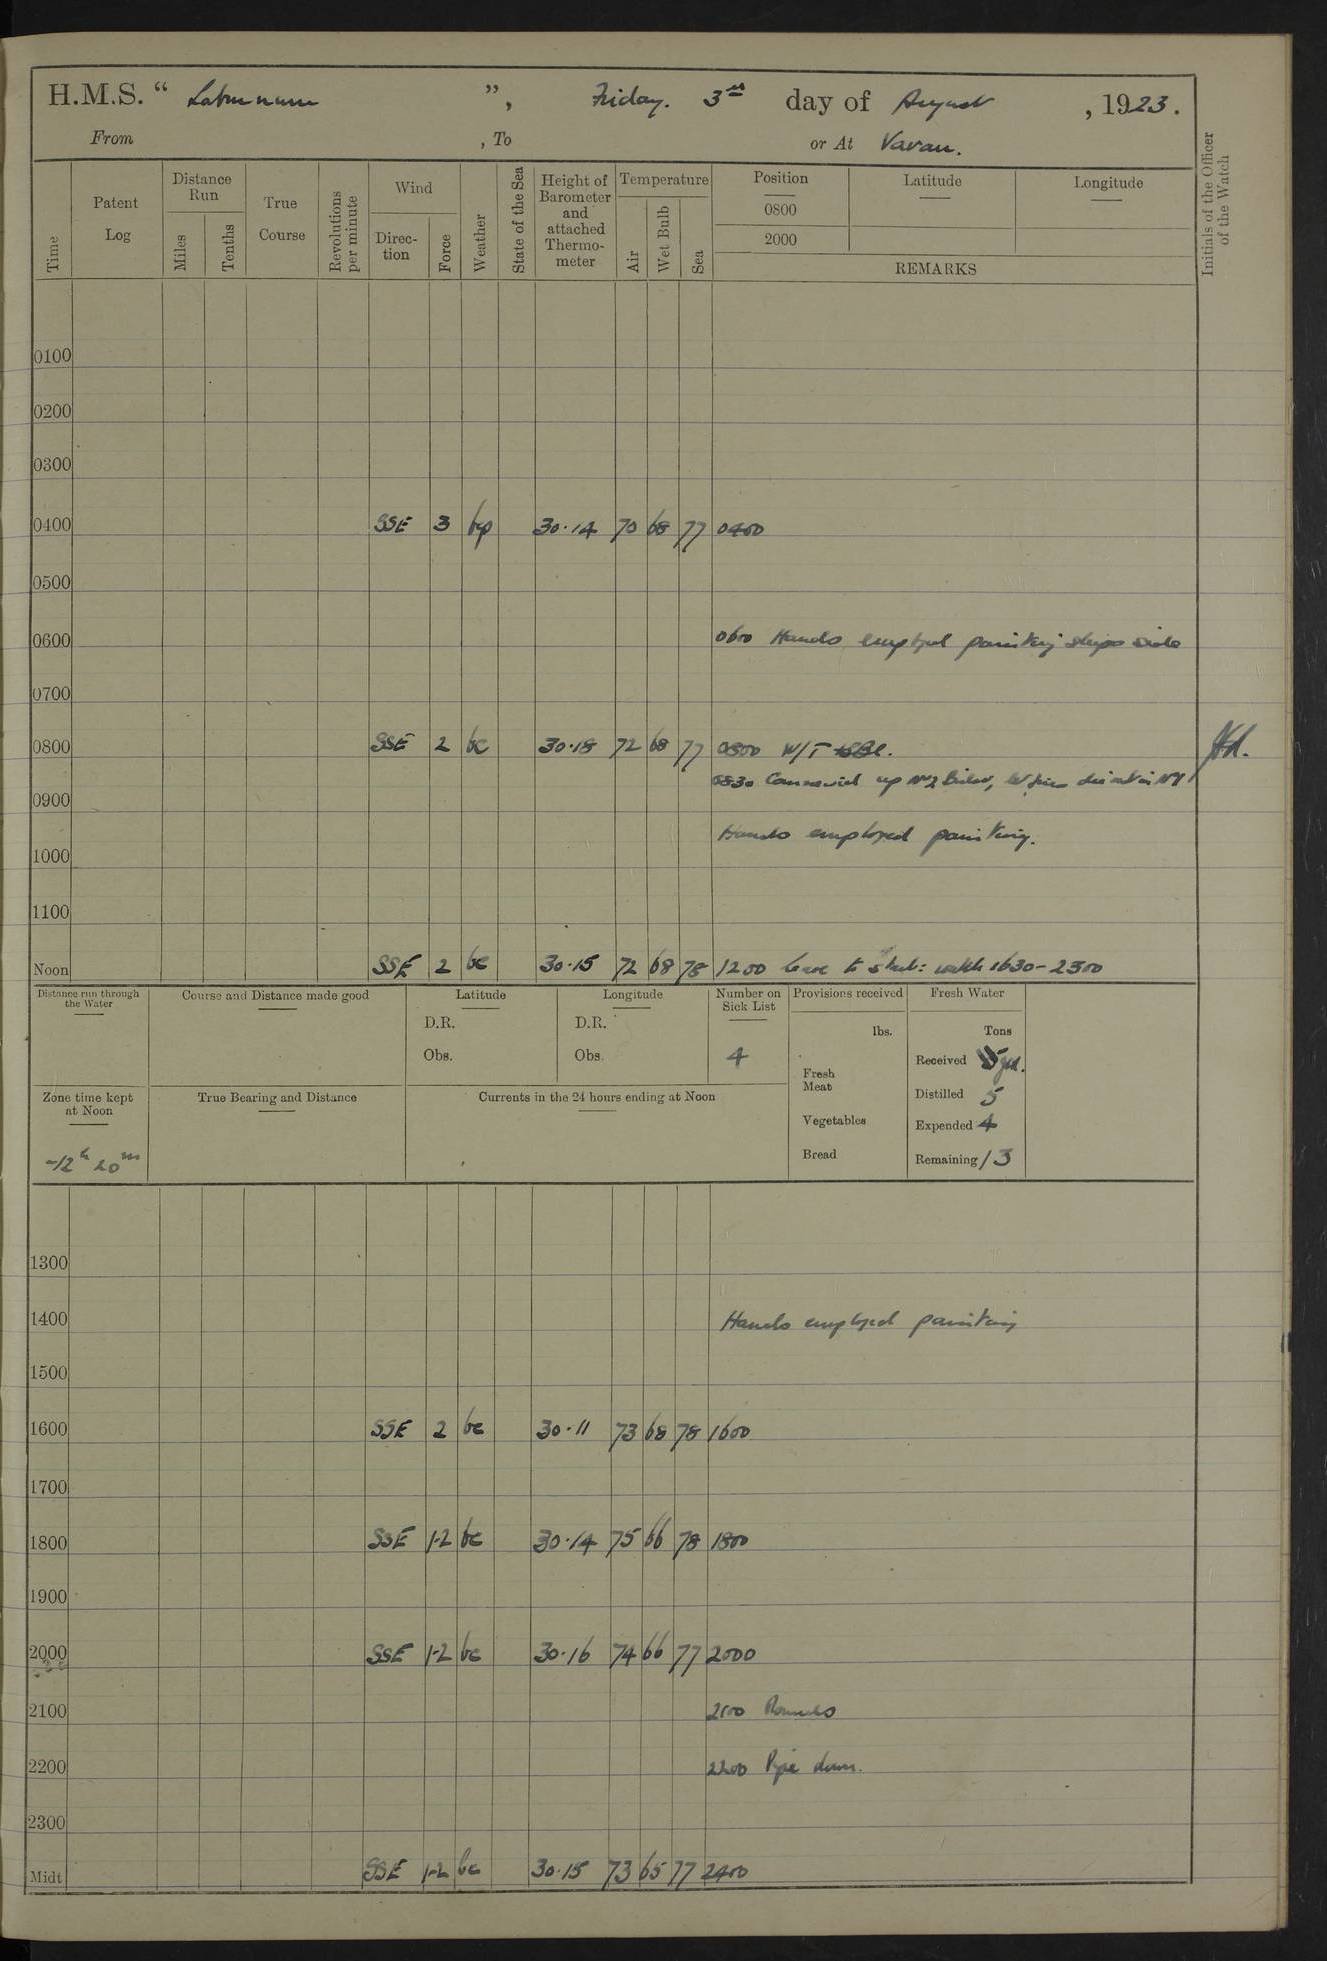 H.M.S. “ Laburnum ”, Friday. 3rd day of August, 1923.
From , To or At Vavau.
Time
Patent Log
Distance Run
Miles
Tenths
True Course
Revolutions per minute
Wind
Direction
Force
Weather
State of the Sea
Height of Barometer and attached Thermometer
Temperature
Air
Wet Bulb
Sea
Position Latitude Longitude
0800
2000
REMARKS
Initials of the Officer of the Watch
0100
0200
0300
0400 SSE 3 bcp 30.14 70 68 77 0400
0500
0600 0600 Hands employed painting ships side
0700
0800 SSE 2 bc 30.18 72 68 77 0800 W/T
0830 up No 2 Boiler, let fires die out in No 1
0900
Hands employed painting.
1000
1100
Noon SSE 2 bc 30.15 72 68 78 1200 Leave to Starb: watch 1630-2300
Distance run through the Water
Course and Distance made good
Latitude
D.R.
Obs.
Longitude
D.R.
Obs.
Number on Sick List
4
Provisions received
lbs.
Fresh Meat
Vegetables
Bread
Fresh Water
Tons
Received
Distilled 5
Expended 4
Remaining 13
Zone time kept at Noon
-12h 20m
True Bearing and Distance
Currents in the 24 hours ending at Noon
1300
1400 Hands employed painting
1500
1600 SSE 2 bc 30.11 73 68 78 1600
1700
1800 SSE 1-2 bc 30.14 75 66 78 1800
1900
2000 SSE 1-2 bc 30.16 74 66 77 2000
2100 2100 Rounds
2200 2200 Pipe down.
2300
Midt SSE 1-2 bc 30.15 73 65 77 2400